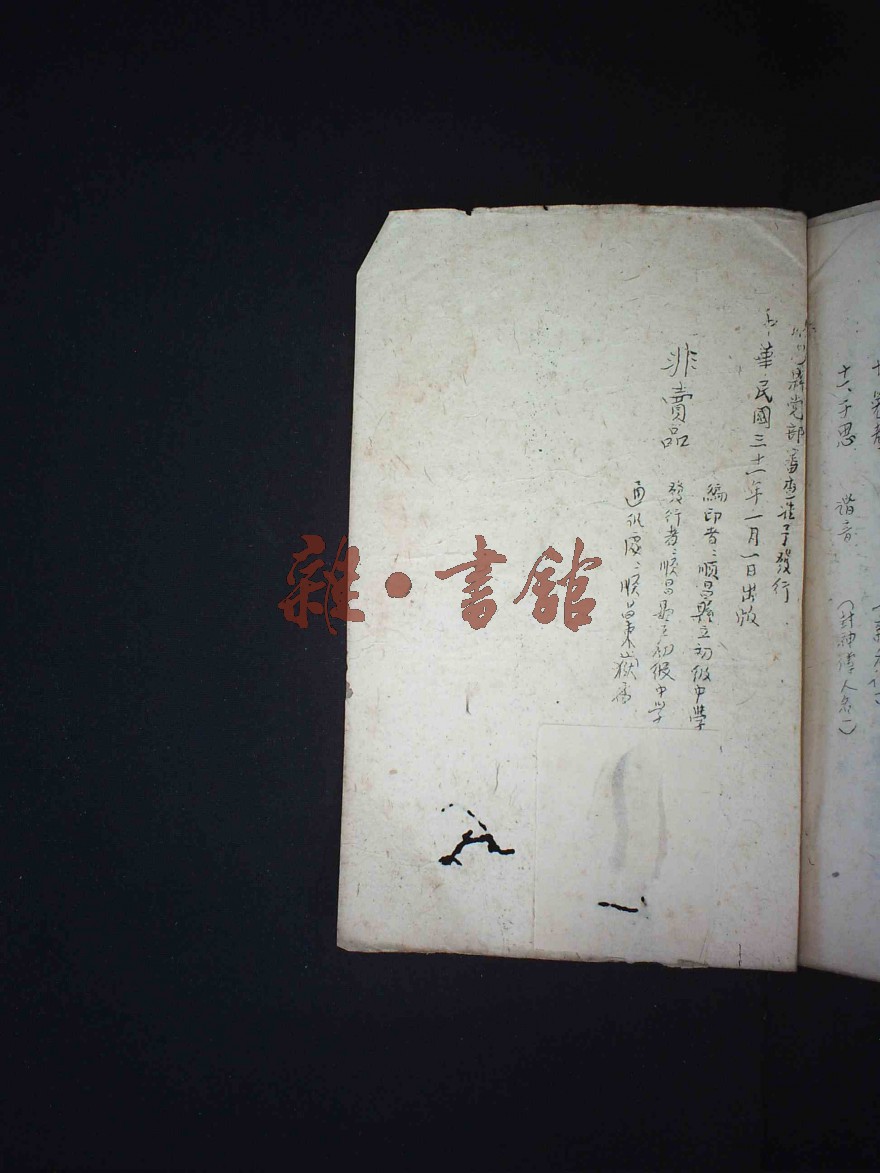 十六、子思　諧音　(封神傳人名一)
縣党部審查准予發行
中華民國三十一年一月一日出版
非賣品
編印者：順昌縣立初級中學
發行者：順昌縣立初級中学
通訊處：順昌東嶽廟
雜·書館